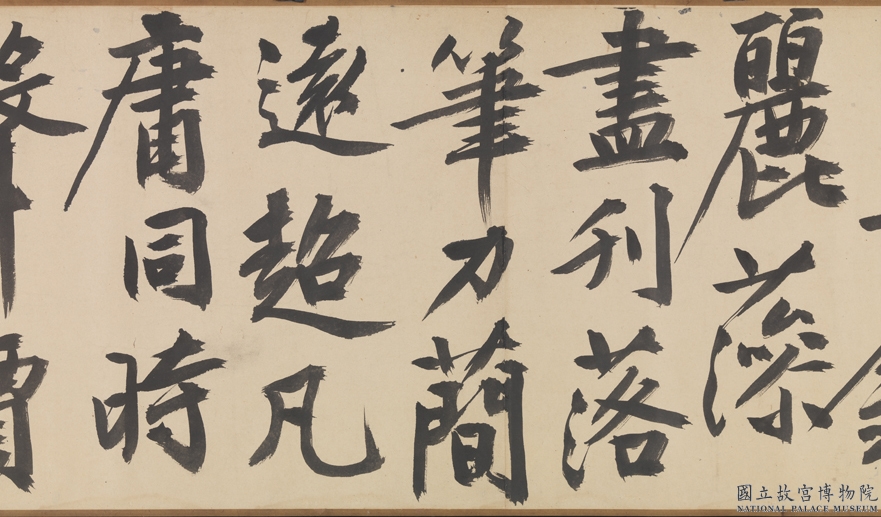 麗藻
盡刊落
筆力簡
遠超凡
庸同時
國立故宮博物院
NATIONAL PALACE MUSEUM